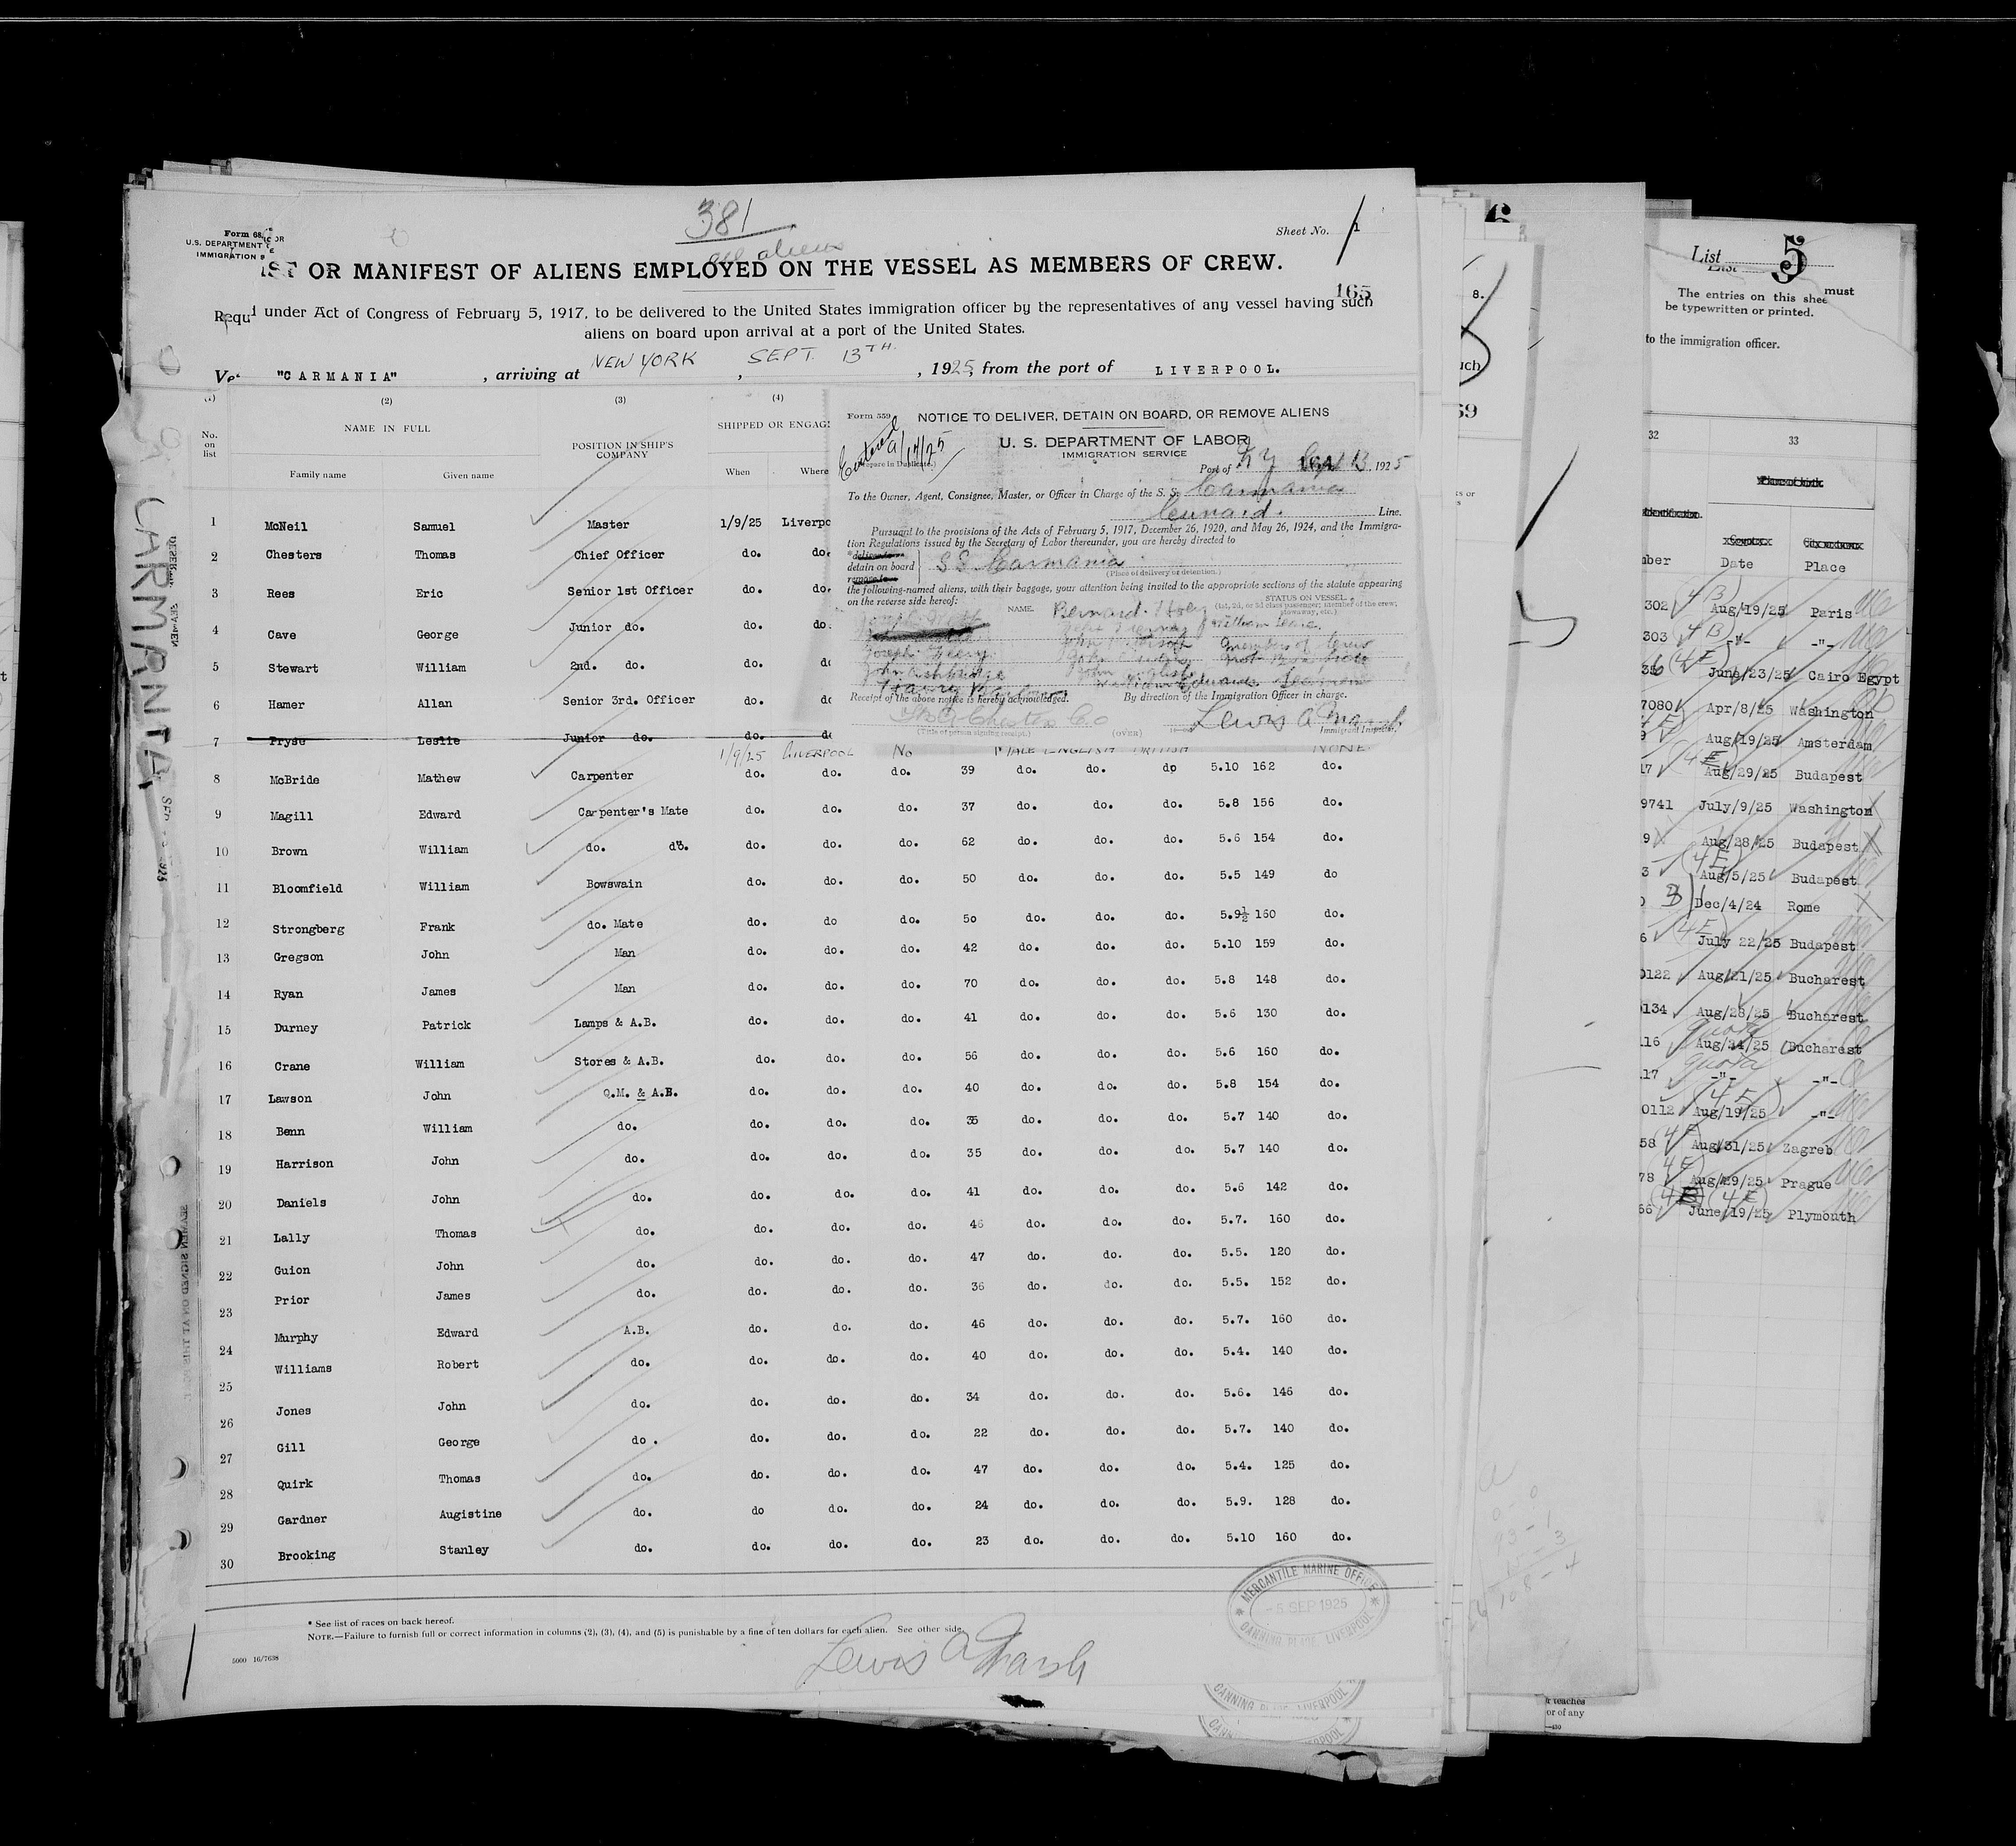 381
all aliens
Form 68
U.S. DEPARTMENT OR
IMMIGRATION
Sheet No. 1
ST OR MANIFEST OF ALIENS EMPLOYED ON THE VESSEL AS MEMBERS OF CREW.
165
Requ d under Act of Congress of February 5, 1917, to be delivered to the United States immigration officer by the representatives of any vessel having such
aliens on board upon arrival at a port of the United States.
Ve "CARMANIA" , arriving at NEW YORK , SEPT. 13TH. , 1925, from the port of LIVERPOOL.
(1) (2) (3) (4)
No. on list NAME IN FULL POSITION IN SHIP'S COMPANY SHIPPED OR ENGAG
Family name Given name When Where
1 McNeil Samuel Master 1/9/25 Liverpo
2 Chesters Thomas Chief Officer do. do.
3 Rees Eric Senior 1st Officer do. do.
4 Cave George Junior do. do. do.
5 Stewart William 2nd. do. do. do
6 Hamer Allan Senior 3rd. Officer do. do
7 Pryse Leslie Junior do. do. do
1/9/25 LIVERPOOL No MALE ENGLISH BRITISH NONE
8 McBride Mathew Carpenter do. do. do. 39 do. do. do 5.10 162 do.
9 Magill Edward Carpenter's Mate do. do. do. 37 do. do. do. 5.8 156 do.
10 Brown William do. do. do. do. do. 62 do. do. do. 5.6 154 do.
11 Bloomfield William Bowswain do. do. do. 50 do. do. do. 5.5 149 do
12 Strongberg Frank do. Mate do. do do. 50 do. do. do. 5.9½ 160 do.
13 Gregson John Man do. do. do. 42 do. do. do. 5.10 159 do.
14 Ryan James Man do. do. do. 70 do. do. do. 5.8 148 do.
15 Durney Patrick Lamps & A.B. do. do. do. 41 do. do. do. 5.6 130 do.
16 Crane William Stores & A.B. do. do. do. 56 do. do. do. 5.6 160 do.
17 Lawson John Q.M. & A.B. do. do. do. 40 do. do. do. 5.8 154 do.
18 Benn William do. do. do. do. 35 do. do. do. 5.7 140 do.
19 Harrison John do. do. do. do. 35 do. do. do. 5.7 140 do.
20 Daniels John do. do. do. do. 41 do. do. do. 5.6 142 do.
21 Lally Thomas do. do. do. do. 46 do. do. do. 5.7. 160 do.
22 Guion John do. do. do. do. 47 do. do. do. 5.5. 120 do.
23 Prior James do. do. do. do. 36 do. do. do. 5.5. 152 do.
24 Murphy Edward A.B. do. do. do. 46 do. do. do. 5.7. 160 do.
25 Williams Robert do. do. do. do. 40 do. do. do. 5.4. 140 do.
26 Jones John do. do. do. do. 34 do. do. do. 5.6. 146 do.
27 Gill George do. do. do. do. 22 do. do. do. 5.7. 140 do.
28 Quirk Thomas do. do. do. do. 47 do. do. do. 5.4. 125 do.
29 Gardner Augistine do. do do. do. 24 do. do. do. 5.9. 128 do.
30 Brooking Stanley do. do. do. do. 23 do. do. do. 5.10 160 do.
* See list of races on back hereof.
NOTE.—Failure to furnish full or correct information in columns (2), (3), (4), and (5) is punishable by a fine of ten dollars for each alien. See other side.
5000 16/7638
Lewis A Marsh
MERCANTILE MARINE OFFICE
-5 SEP 1925
CANNING PLACE, LIVERPOOL
CANNING PLACE LIVERPOOL
CARMANIA
Form 559
Entered 9/14/25
(Prepare in Duplicate.)
NOTICE TO DELIVER, DETAIN ON BOARD, OR REMOVE ALIENS
U. S. DEPARTMENT OF LABOR
IMMIGRATION SERVICE
Port of N Y Sept 13, 1925
164
To the Owner, Agent, Consignee, Master, or Officer in Charge of the S. S. Carmania
Cunard. Line.
Pursuant to the provisions of the Acts of February 5, 1917, December 26, 1920, and May 26, 1924, and the Immigra-
tion Regulations issued by the Secretary of Labor thereunder, you are hereby directed to
*deliver to
detain on board SS Carmania
remove to
(Place of delivery or detention.)
the following-named aliens, with their baggage, your attention being invited to the appropriate sections of the statute appearing
on the reverse side hereof:
NAME. STATUS ON VESSEL.
(1st, 2d, or 3d class passenger; member of the crew; stowaway, etc.)
Bernard
William
Joseph
members of crew
not Bona fide
John Ashbridge John English
Harry William Edwards Seamen
Receipt of the above notice is hereby acknowledged. By direction of the Immigration Officer in charge.
Lewis A Marsh
(Title of person signing receipt.) (OVER) Immigrant Inspector.
6
8.
uch
69
List 5
The entries on this shee must
be typewritten or printed.
to the immigration officer.
32 33
mber Date Place
302 (4 B) Aug/19/25 Paris
303 (4 B) -"- -"-
356 (4 E) June/23/25 Cairo Egypt
7080 Apr/8/25 Washington
9 Aug/19/25 Amsterdam
17 (4 E) Aug/29/25 Budapest
9741 July/9/25 Washington
9 Aug/28/25 Budapest
3 (4 E) Aug/5/25 Budapest
0 3 Dec/4/24 Rome
6 (4 E) July 22/25 Budapest
0122 Aug/21/25 Bucharest
0134 Aug/28/25 Bucharest
116 quota Aug/24/25 Bucharest
117 quota -"- -"-
0112 (4 E) Aug/19/25 -"-
58 4 E Aug/31/25 Zagreb
78 4 E Aug/29/25 Prague
56 (4 B) (4 E) June/19/25 Plymouth
r teaches
or of any
—430